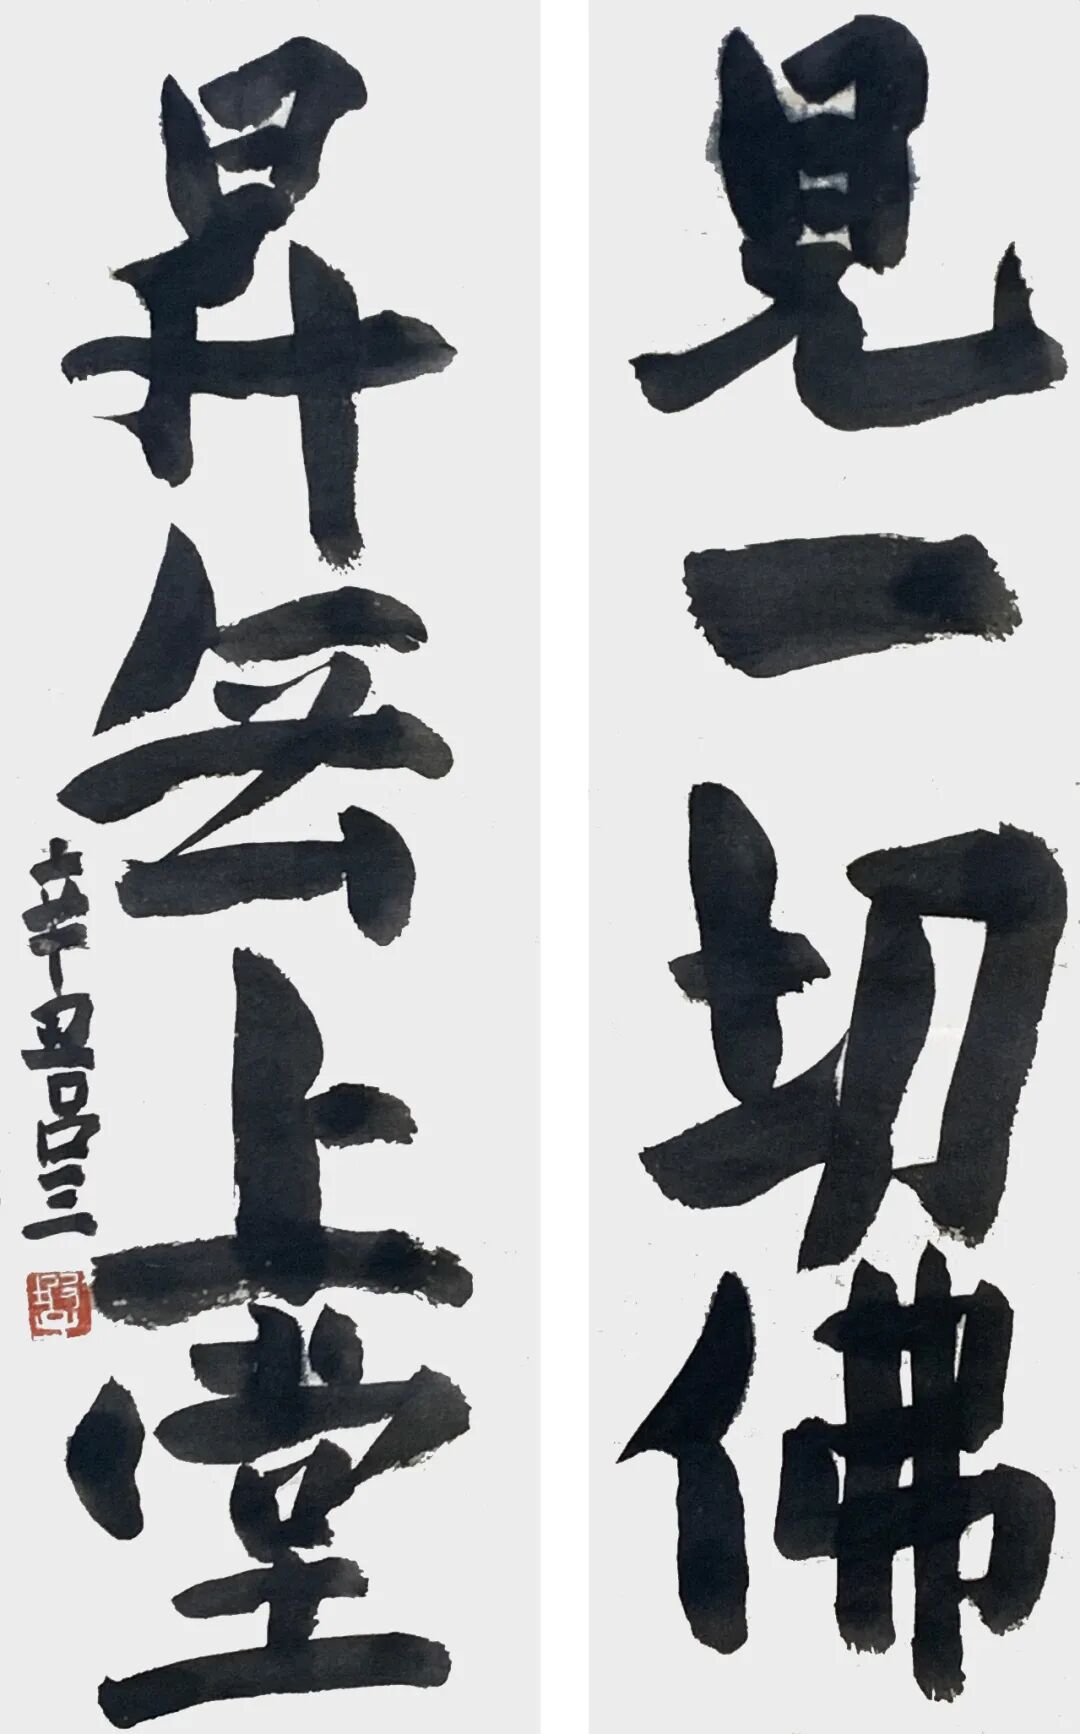 見一切佛
昇無上堂
辛丑吕三